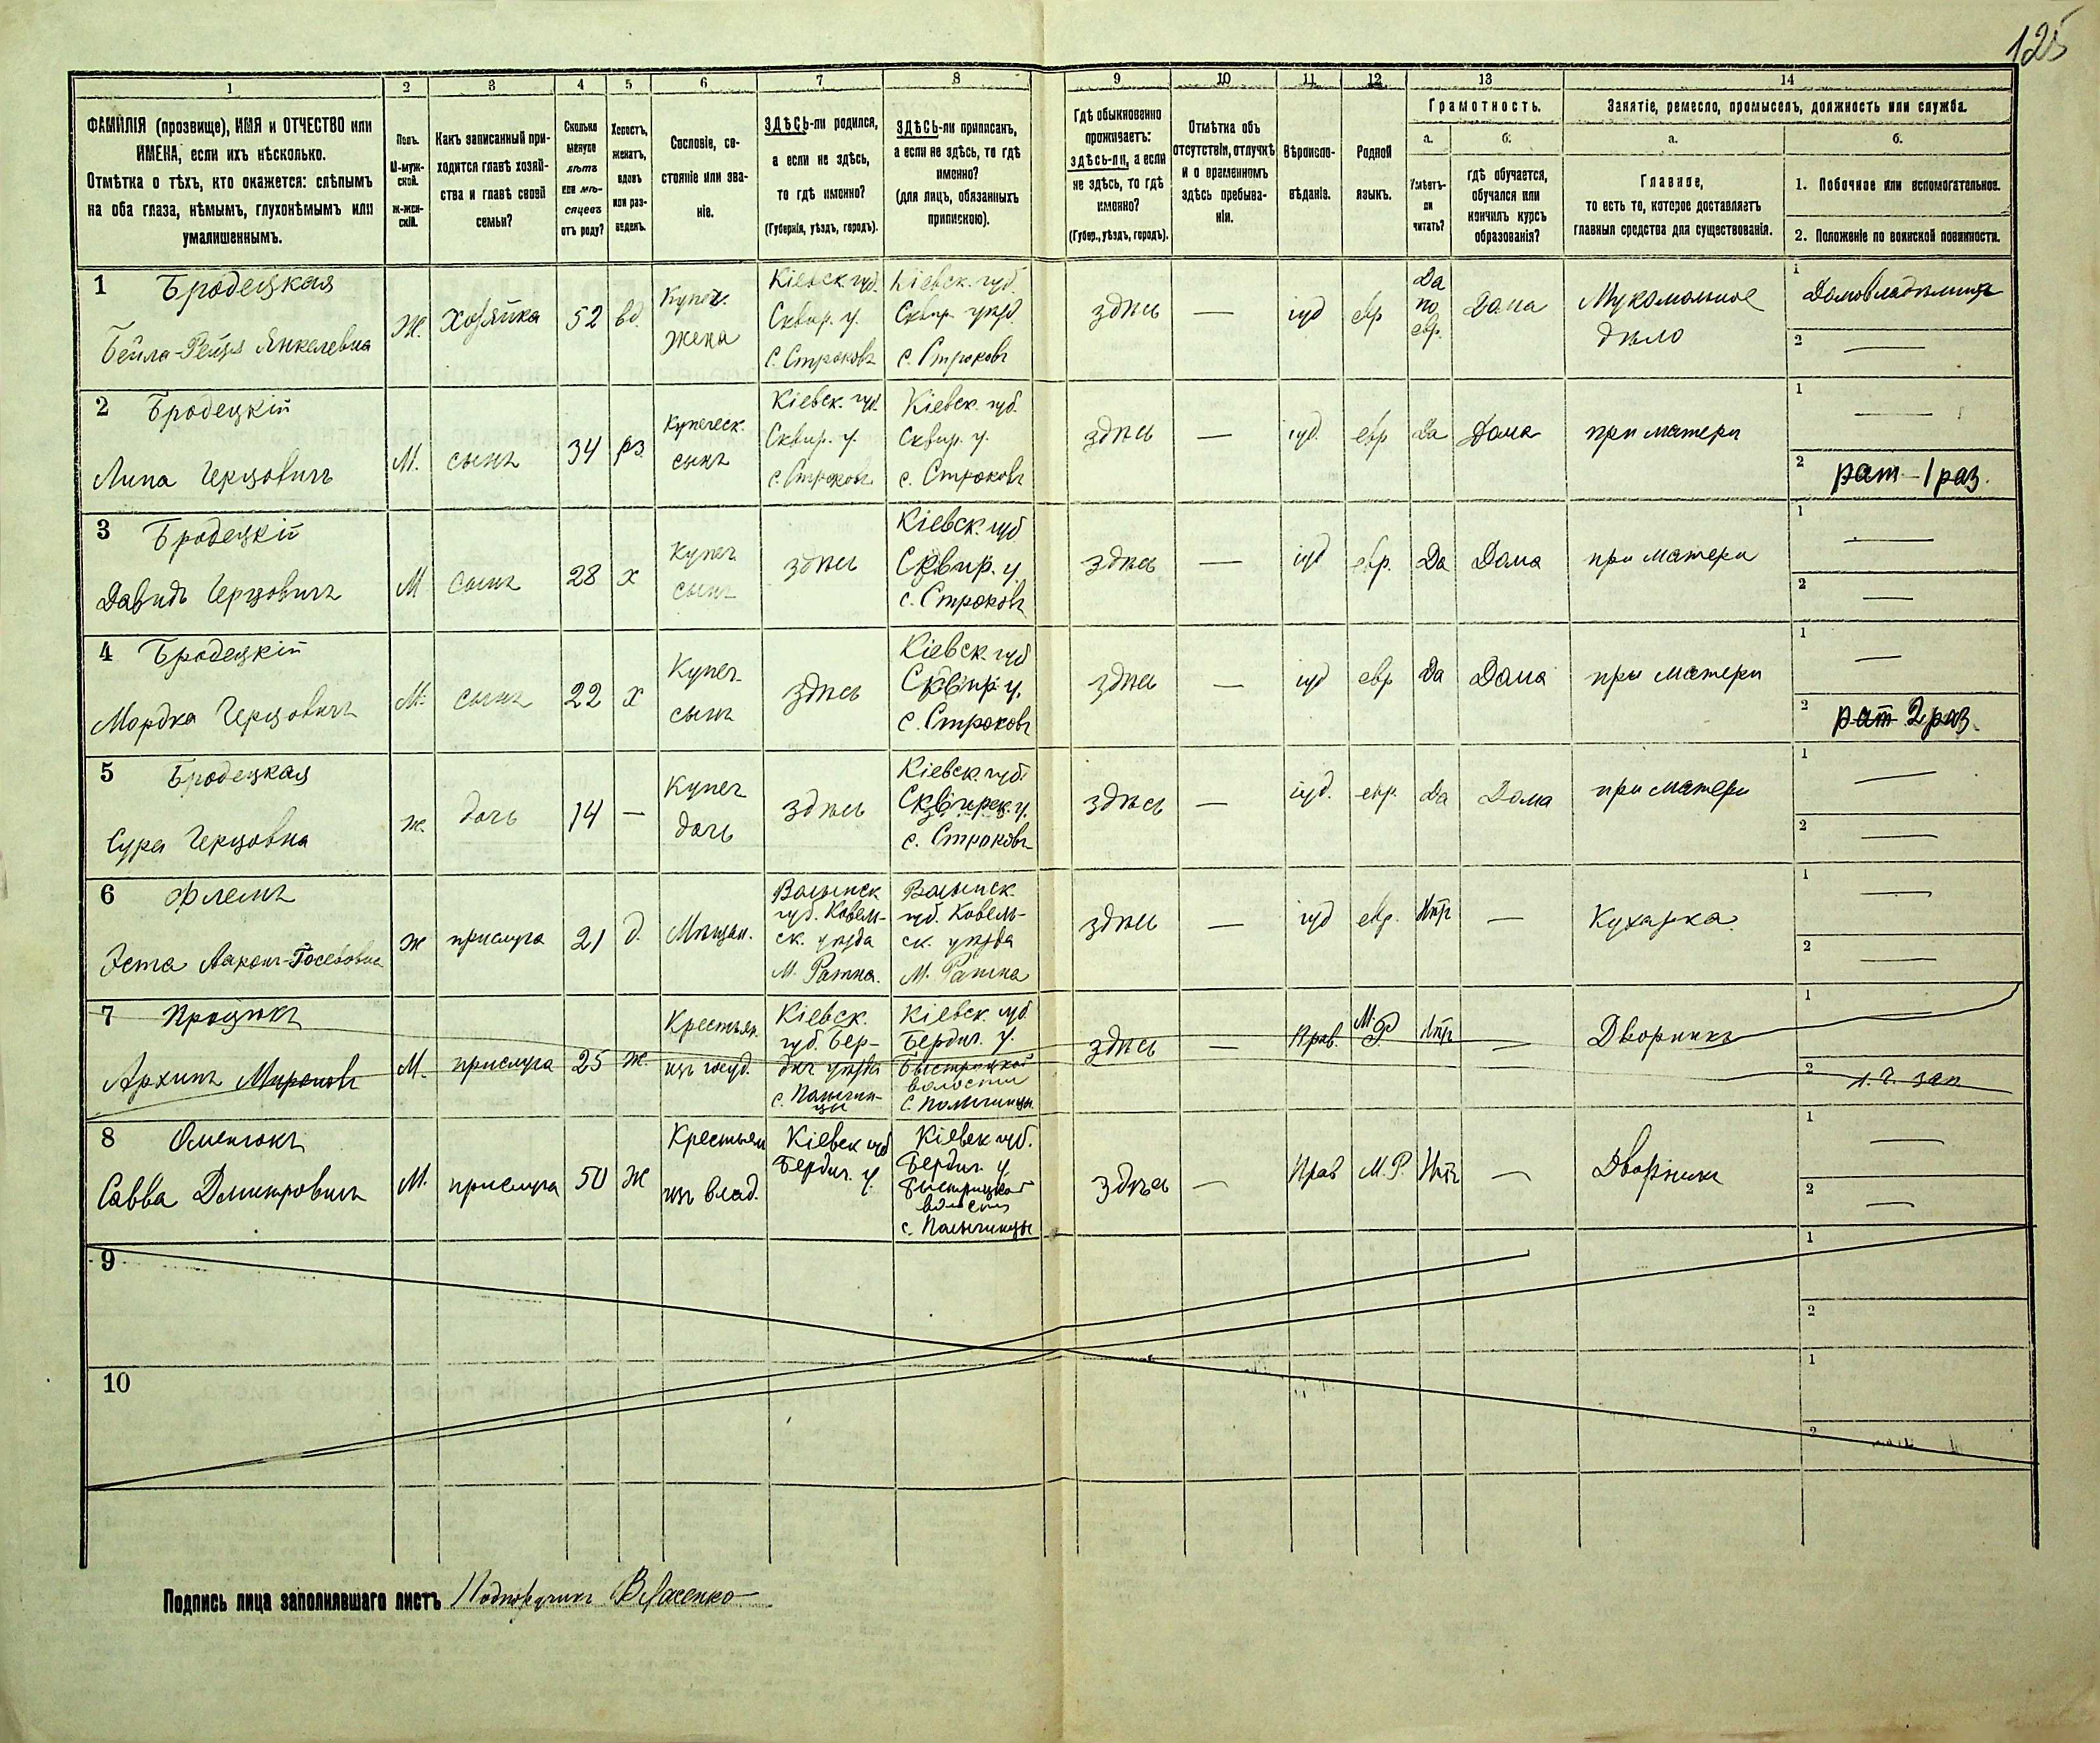 125
1
2
3
4
5
6
7
8
9
10
11
12
13
14
ФАМИЛІЯ (прозвище), ИМЯ и ОТЧЕСТВО или
ИМЕНА, если ихъ нѣсколько.
Отмѣтка о тѣхъ, кто окажется: слѣпымъ
на оба глаза, нѣмымъ, глухонѣмымъ или
умалишеннымъ.
Полъ.
М-муж-
ской.
Ж-жен-
скій.
Какъ записанный при-
ходится главѣ хозяй-
ства и главѣ своей
семьи?
Сколько
минуло
лѣтъ
или мѣ-
сяцевъ
отъ роду?
Холостъ,
женатъ,
вдовъ
или раз-
веденъ.
Сословіе, со-
стояніе или зва-
ніе.
ЗДѢСЬ-ли родился,
а если не здѣсь,
то гдѣ именно?
(Губернія, уѣздъ, городъ).
ЗДѢСЬ-ли приписанъ,
а если не здѣсь, то гдѣ
именно?
(для лицъ, обязанныхъ
припискою).
Гдѣ обыкновенно
проживаетъ:
здѣсь-ли, а если
не здѣсь, то гдѣ
именно?
(Губер., уѣздъ, городъ).
Отмѣтка объ
отсутствіи, отлучкѣ
и о временномъ
здѣсь пребыва-
ніи.
Вѣроиспо-
вѣданіе.
Родной
языкъ.
Грамотность.
а.
Умѣетъ-
ли
читать?
б.
гдѣ обучается,
обучался или
кончилъ курсъ
образованія?
Занятіе, ремесло, промыселъ, должность или служба.
а.
Главное,
то есть то, которое доставляетъ
главныя средства для существованія.
б.
1. Побочное или вспомогательное.
2. Положеніе по воинской повинности.
1 Бродецкая
Бейла-Рейзя Янкелевна
Ж.
Хозяйка
52
вд.
Купеч.
жена
Кіевск. губ.
Сквир. у.
с. Строковъ
Кіевск. губ.
Сквир. уѣзд.
с. Строковъ
здѣсь
—
іуд
евр
Да
по
евр.
Дома
Мукомольное
дѣло
1
Домовладѣлица
2
—
2 Бродецкій
Липа Герцовичъ
М.
сынъ
34
рз
Купеческ.
сынъ
Кіевск. губ.
Сквир. у.
с. Строковъ
Кіевск. губ.
Сквир. у.
с. Строковъ
здѣсь
—
іуд.
евр
Да
Дома
при матери
1
—
2
рат - 1 раз.
3 Бродецкій
Давидъ Герцовичъ
М
сынъ
28
х
Купеч
сынъ
здѣсь
Кіевск. губ
Сквир. у.
с. Строковъ
здѣсь
—
іуд
евр.
Да
Дома
при матери
1
—
2
—
4 Бродецкій
Мордка Герцовичъ
М.
сынъ
22
х
Купеч
сынъ
здѣсь
Кіевск. губ
Сквир. у.
с. Строковъ
здѣсь
—
іуд
евр
Да
Дома
при матери
1
—
2
рат 2 раз.
5 Бродецкая
Сура Герцовна
ж.
дочь
14
—
Купеч
дочь
здѣсь
Кіевск. губ
Сквирск. у.
с. Строковъ
здѣсь
—
іуд.
евр.
Да
Дома
при матери
1
—
2
—
6 Флемъ
Эста Ааронъ-Іосебовна
ж
прислуга
21
д.
Мѣщан.
Волынск
губ. Ковель-
ск. уѣзда
М. Ратна.
Волынск.
губ. Ковель-
ск. уѣзда
М. Ратна
здѣсь
—
іуд
евр.
Нѣт
—
Кухарка
1
—
2
—
7 Процюкъ
Архипъ Мироновъ
М.
прислуга
25
ж.
Крестьян.
изъ госуд.
Кіевск.
губ. Бер-
дич уѣзда
с. Пальчин-
цы
Кіевск. губ
Бердич. у.
Быстрицкой
волости
с. Пальчинцы
здѣсь
—
Прав.
М. Р
Нѣт
—
Дворникъ
1
2
н. г. зап
8 Оменюкъ
Савва Дмитровичъ
М.
прислуга
50
ж
Крестьян
изъ влад.
Кіевск губ
Бердич. у.
Кіевск губ.
Бердич. у
Быстрицкой
волости
с. Пальчинцы
здѣсь
—
Прав
М. Р.
Нѣт
—
Дворникъ
1
—
2
—
9
1
2
10
1
2
Подпись лица заполнявшаго листъ Подпоручикъ Власенко